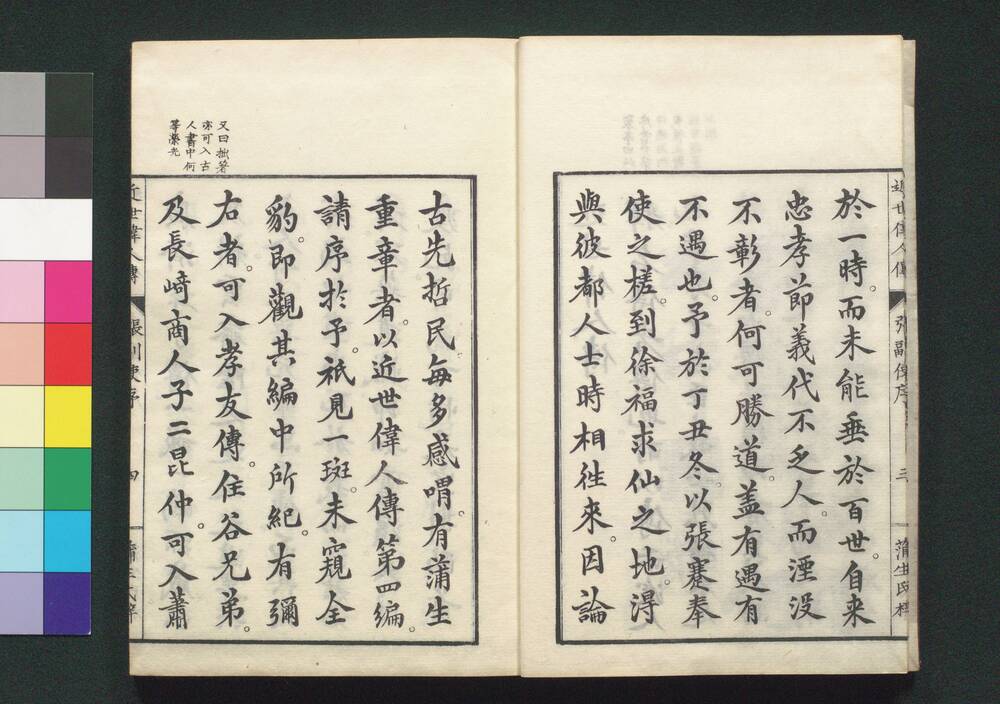 於一時。而未能垂於百世。自来
忠孝節義代不乏人。而湮没
不彰者。何可勝道。盖有遇有
不遇也。予於丁丑冬。以張蹇奉
使之槎。到徐福求仙之地。淂
與彼都人士時相徃來。因論
又曰拙著
亦可入古
人書中何
等榮光
古先哲民。每多感喟。有蒲生
重章者以近世偉人傳第四編。
請序扵予。祇見一斑。未窺全
豹。即觀其編中所紀。有彌
右者。可入孝友傳。住谷兄弟。
及長﨑商人子二昆仲。可入蕭
近世偉人傳
張副使序
三
蒲生氏梓
近世偉人傳
張副使序
四
蒲生氏梓